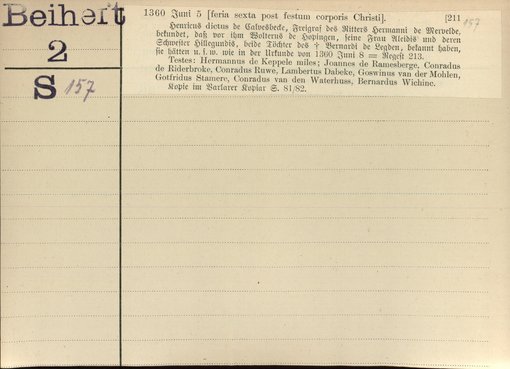 Beiheft
2
S 157
1360 Juni 5 [feria sexta post festum corporis Christi]. [211
157
Henricus dictus de Calvesbeke, Freigraf des Ritters Hermanni de Mervelde,
bekundet, daß vor ihm Wolterus de Hopingen, seine Frau Aleidis und deren
Schwester Hillegundis, beide Töchter des † Bernardi de Legden, bekannt haben,
sie hätten u. s. w. wie in der Urkunde von 1360 Juni 8 = Regest 213.
Testes: Hermannus de Keppele miles; Joannes de Ramesberge, Conradus
de Riderbroke, Conradus Ruwe, Lambertus Dabeke, Goswinus van der Mohlen,
Gottfridus Stamere, Conradus van den Waterhuss, Bernardus Wichine.
Kopie im Varlarer Kopiar S. 81/82.